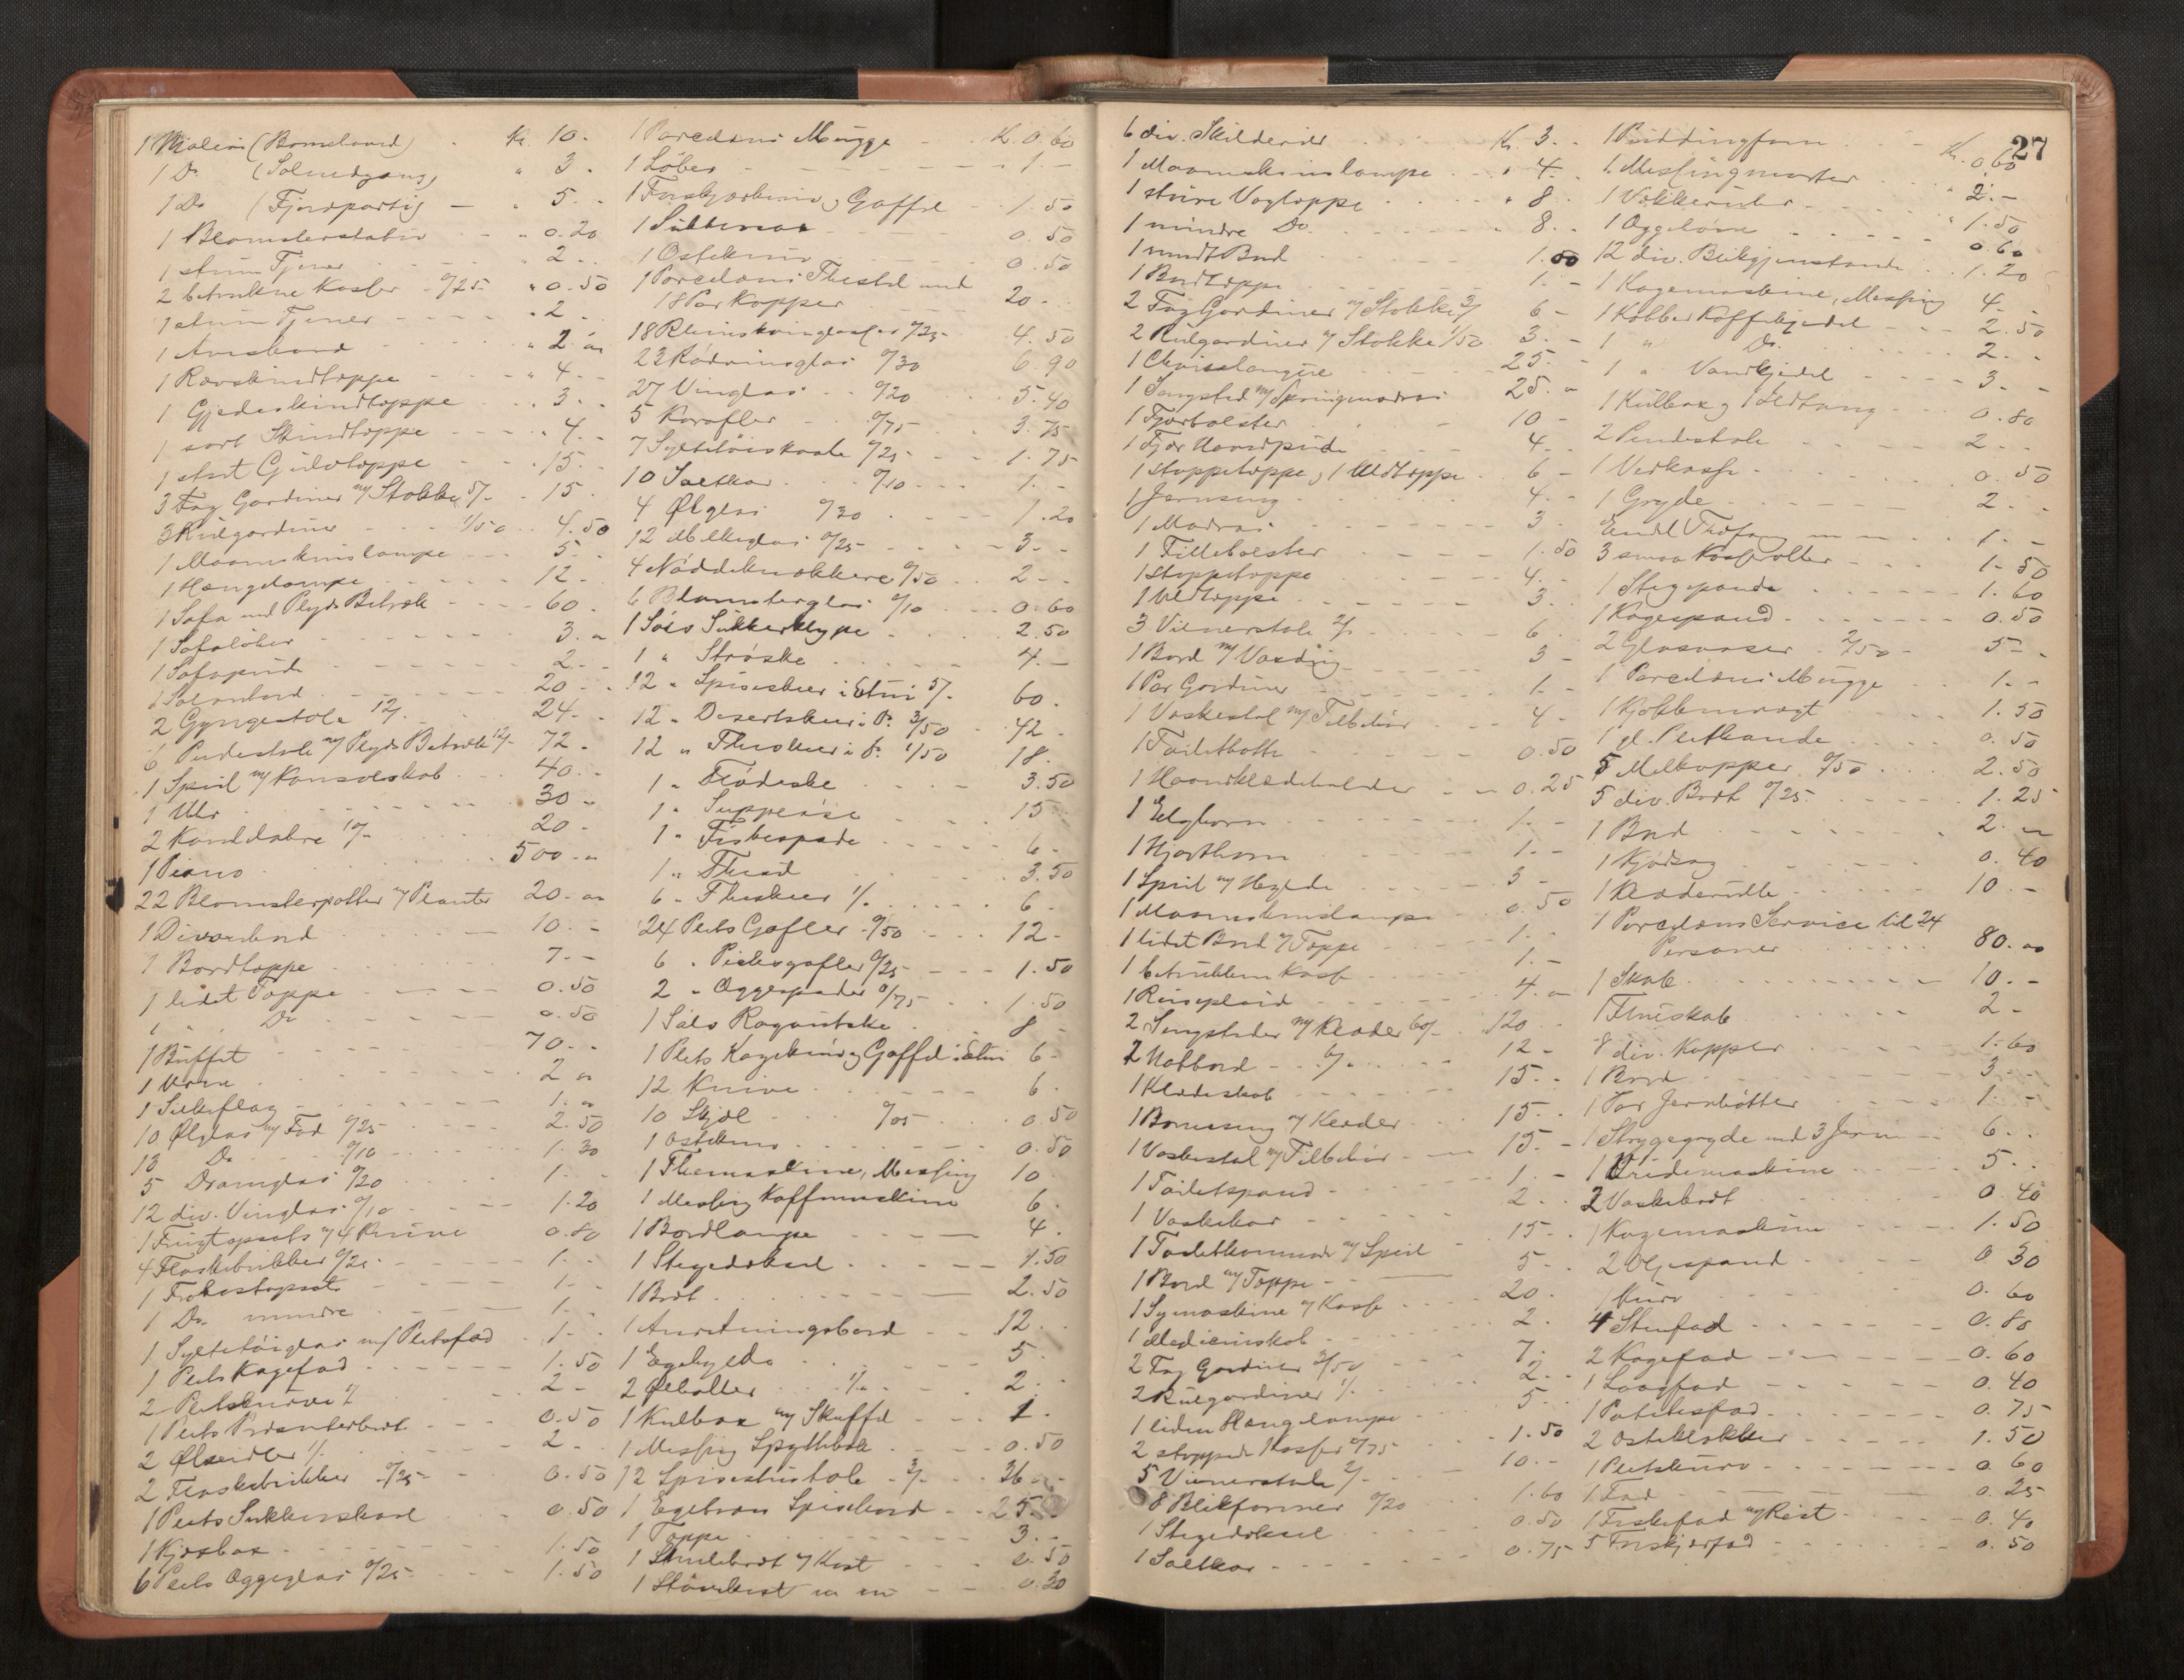 1 Maleri (Bomsland) . Kr. 10.-
1 Do (Solnedgang) " 3.
1 Do (Fjordparti) - " 5.-
1 Blomsterstativ - " 0.20
1 stum Tjener " 2.-
2 betrukne Kasser 0/25 " 0.50
1 stum Tjener " 2.
1 Avisbord " 2 "
1 Rævskindtæppe " 4.-
1 Gjedeskindtæppe " 3.-
1 sort Skindtæppe " 4.-
1 stort Gulvtæppe " 15.-
3 Fag Gardiner m/ Stokke 5/- 15.
3 Rulgardiner 1/50 4.50
1 Maaneskinslampe 5.-
1 Hængelampe 12.-
1 Sofa med Plyds Betræk 60.
1 Sofaløber 3.-
1 Sofapude 2.-
1 Salonbord 20 -
2 Gyngestole 12/- 24.-
6 Pudestole m/ Plyds Betræk 12/- 72.-
1 Speil m/ Konsolskab 40.-
1 Uhr 30 -
2 Kandelabre 10/- 20 -
1 Piano 500.-
22 Blomsterpotter m/ Planter 20.-
1 Divanbord 10.-
1 Bordtæppe 7.-
1 lidet Tæppe 0.50
1 " Do 0.50
1 Buffet 70.-
1 Urne 2 "
1 Silkeflag 1."
10 Ølglas m/ Fod 0/25 2.50
13 Do 0/10 1.30
5 Dramglas 0/20 1.-
12 div. Vinglas 0/10 1.20
1 Frugtopsats m/ 4 Knive 0.80
4 Flaskebrikker 0/25 1.-
1 Frokostopsats 1.-
1 Do mindre 1.-
1 Syltetøiglas m/ Pletsfad 1.-
1 Plets Kagefad 1.50
2 Pletskurve 1/ 2 -
1 Plets Præsenterbret 0.50
2 Ølseidler 1/ 2 -
2 Flaskebrikker 0/25 0.50
1 Plets Sukkerskaal 0.50
1 Kjæxbox 1.50
6 Plets Æggeglas 0/25 1.50
1 Porcelæns Mugge Kr. 0.60
1 Løber 1.-
1 Forskjærkniv og Gaffel 1.50
1 Sukkersax 0.50
1 Ostekniv 0.50
1 Porcelæns Thestel med
18 Par Kopper 20.-
18 Rhinskvinsglasser 0/25 4.50
23 Rødvinsglas 0/30 6.90
27 Vinglas 0/20 5.40
5 Karafler 0/75 3.75
7 Syltetøiskaale 0/25 1.75
10 Saltkar 0/10 1.-
4 Ølglas 0/30 1.20
12 Melkeglas 0/25 3.-
4 Nøddeknækkere 0/50 2.-
6 Blomsterglas 0/10 0.60
1 Sølv Sukkerklype 2.50
1 " Strøske 4.-
12 " Spiseskeer i Etui 5/- 60.
12 " Desertskeer i Do 3/50 42.-
12 " Theskeer i Do 1/50 18.
1 " Flødeske 3.50
1 " Suppeøse 15 -
1 " Fiskespade 6 -
1 " Thesid 3.50
6 " Theskeer 1/. 6.-
24 Plets Gafler 0/50 12.-
6 " Picklesgafler 0/25 1.50
2 " Æggespader 0/75 1.50
1 Sølv Ragoutske 8 -
1 Plets Kagekniv og Gaffel i Etui 6.-
12 Knive 6.
10 Skjol 0/05 0.50
1 Ostekniv 0.50
1 Themaskine, Messing 10
1 Messing Kaffemaskine 6.
1 Bordlampe 4.
1 Stegedæksel 1.50
1 Bret 2.50
1 Anretningsbord 12.-
1 Egehylde 5.
2 Ølboller 1/- 2.-
1 Kulbox m/ Skuffel 1.
1 Messing Spyttebak 0.50
12 Spisestustole 3/- 36.-
1 Egetræs Spisebord 25.-
1 Tæppe 3.-
1 Smulebræt m/ Kost 0.50
1 Støvekost 0.30
27
6 div. Skilderier Kr. 3.-
1 Maaneskinslampe " 4.-
1 større Vægtæppe " 8.
1 mindre Do 8.-
1 rundt Bord 1.00
1 Bordtæppe 1.-
2 Fag Gardiner m/ Stokke 3/ 6 -
2 Rulgardiner m/ Stokke 1/50 3.-
1 Chaiselongue 25.-
1 Sengsted m/ Springmadras 25.-
1 Fjærbolster 10 -
1 Fjær Hovedpude 4.-
1 stoppetæppe, 1 Uldtæppe 6 -
1 Jernseng 4.-
1 Madras 3.
1 Fillebolster 1.50
1 stoppetæppe 4.-
1 Uldtæppe 3.
3 Vienerstole 2/- 6.
1 Bord m/ Voxdug 3 -
1 Par Gardiner 1.-
1 Vaskestel m/ Tilbehør 4 -
1 Toiletbøtte 0.50
1 Haandklædeholder 0.25
1 Elghorn 1.-
1 Hjorthorn 1.-
1 Speil m/ Hylde 3 -
1 Maaneskinslampe 0.50
1 lidet Bord m/ Tæppe 1.-
1 betrukken Kasse 1.-
1 Reiseplaid 4.-
2 Sengsteder m/ Klæder 60/- 120.-
2 Natbord 6/- 12 -
1 Klædeskab 15.-
1 Barneseng m/ Klæder 15.-
1 Vaskestel m/ Tilbehør 15 -
1 Toiletspand 1.-
1 Vaskekar 2.-
1 Toiletkommode m/ Speil 15.-
1 Bord m/ Tæppe 5.-
1 Symaskine m/ Kasse 20.
1 Medicinskab 2.
2 Fag Gardiner 3/50 7.
2 Rulgardiner 1/. 2.-
1 liden Hængelampe 5.-
2 stoppede Kasser 0/75 1.50
5 Vienerstole 2/- 10.-
8 Blikformer 0/20 1.60
1 Stegedæksel 0.50
1 Saltkar 0.75
1 Puddingform Kr. 0.60
1 Messingmorter 2.-
1 Vækkeruhr 1.50
1 Æggeløve 0.60
12 div. Blikgjenstande 1.20
1 Kagemaskine, Messing 4.-
1 Kobber Kaffekjedel 2.50
1 " Do 2.-
1 " Vandkjedel 3.-
1 Kulbox og Ildtang 0.80
2 Pindestole 2.-
1 Vedkasse 0.50
1 Gryde 2.-
Endel Træfang 1.-
3 smaa Kasseroller 1.50
1 Stegepande 1.60
1 Kagespand 0.50
2 Glasvaser 2/50 5.-
1 Porcelæns Mugge 1.-
1 Kjøkkenvægt 1.50
1 gl. Pletkande 0.50
5 Melkopper 0/50 2.50
5 div. Bret 0/25 1.25
1 Bord 2.-
1 Kjødsag 0.40
1 Klæderulle 10.-
1 Porcelæns Service til 24
Personer 80.-
1 Skab 10.-
1 Flueskab 2 -
8 div. Kopper 1.60
1 Bord 3.-
1 Par Jernbøtter 1.-
1 Strygegryde med 3 Jern 6.-
1 Vridemaskine 5.-
2 Vaskebret 0.40
1 Kagemaskine 1.50
2 Oljespand 0.30
1 Kurv 0.60
4 Stenfad 0.80
2 Kagefad 0.60
1 Laagfad 0.40
1 Potetesfad 0.75
2 Osteklokker 1.50
1 Pletskurv 0.60
1 Fad 0.25
1 Fiskefad m/ Rist 0.40
5 Forskjærfad 0.50